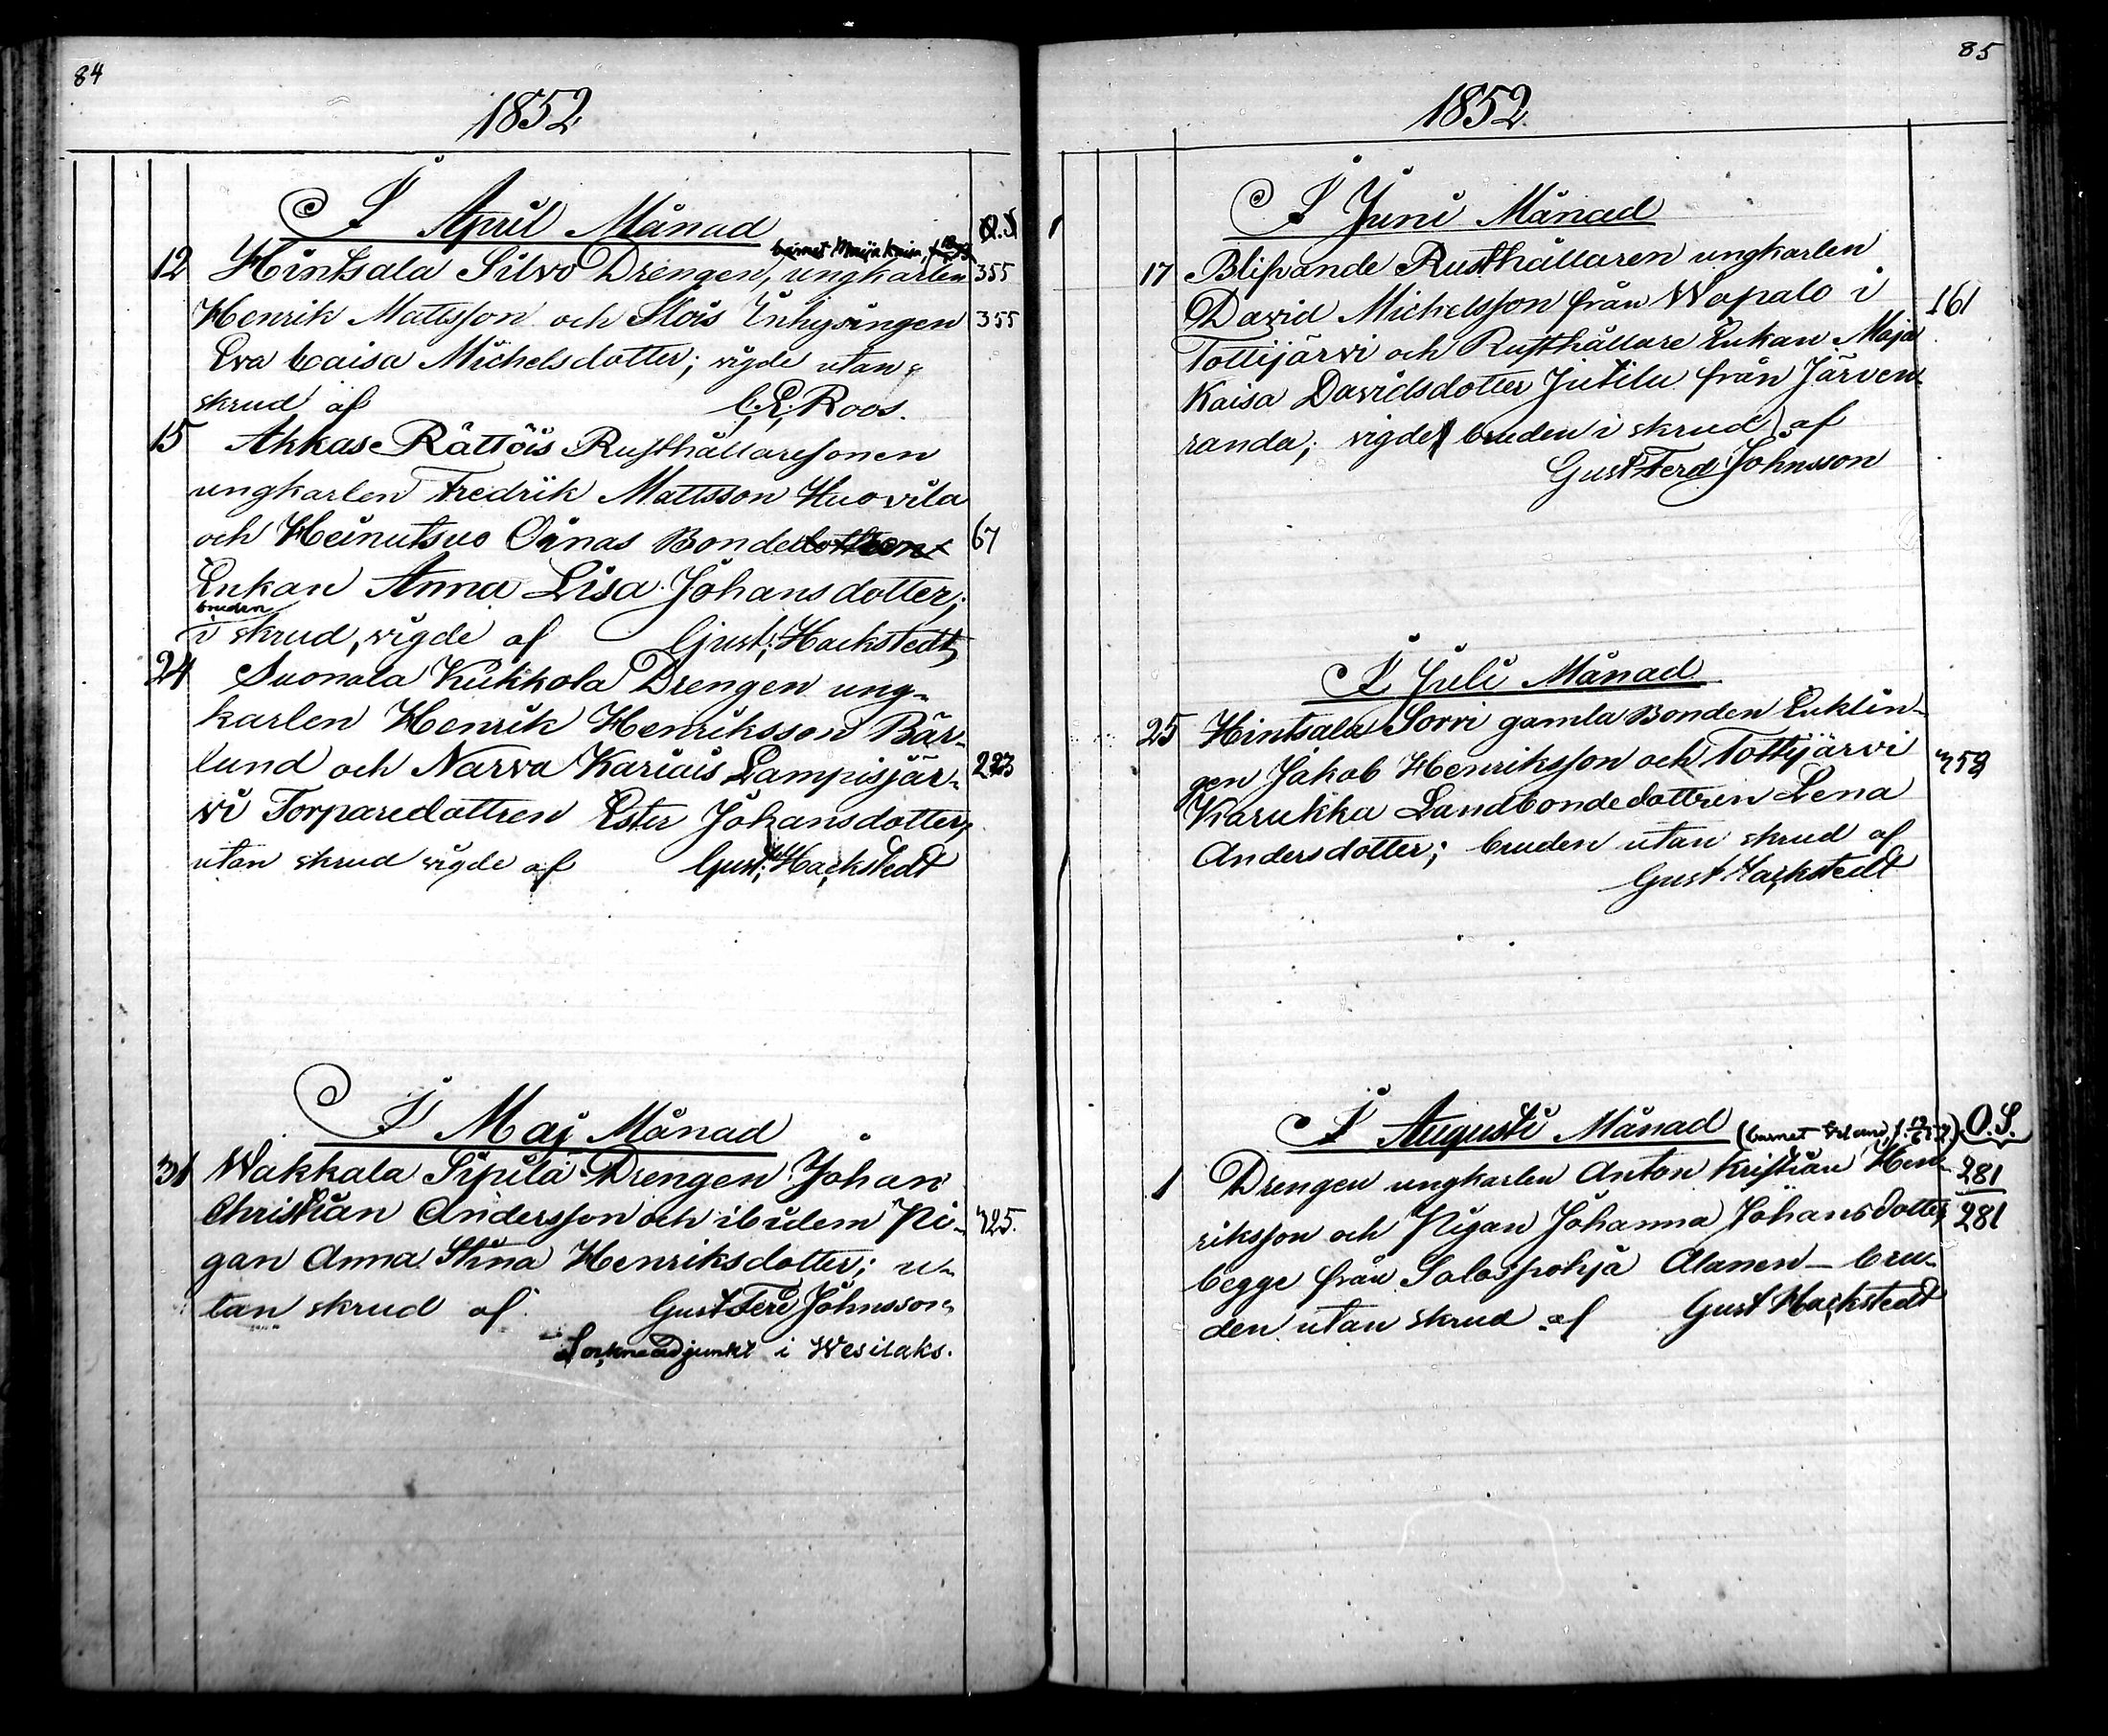 84
1852
I April Månad
O.S
barnet Maija Kaisa
12 Hintsala Silvo Drengen, ungkarlen 355
Henrik Mattsson och Slois Inhysingen 355
Eva Caisa Michelsdotter; vigde utan
skrud af C. E. Roos.
15 Ahkas Rättöis Rusthållaresonen
ungkarlen Fredrik Mattsson Huovila
och Heinutsuo Oinas Bondedottren 67
Enkan Anna Lisa Johansdotter;
bruden
i skrud, vigde af Gust: Hackstedt
24 Suonala Kukkola Drengen ung-
karlen Henrik Henriksson Bär-
lund och Narva Kariais Lampisjär- 223
vi Torparedottren Ester Johansdotter,
utan skrud vigde af Gust: Hackstedt
I Maj Månad
31 Wakkala Sipilä Drengen Johan
Christian Andersson och ibidem Pi- 325.
gan Anna Stina Henriksdotter; u-
tan skrud af Gust Ferd Johnsson
Sockneadjunkt i Wesilaks.
85
1852
I Juni Månad
17 Blifvande Rusthållaren ungkarlen
David Michelsson från Wapalo i 161
Tottijärvi och Rusthållare Enkan Maja
Kaisa Davidsdotter Jutila från Järven-
randa; vigde (bruden i skrud) af
Gust Ferd Johnsson
I Juli Månad
25 Hintsala Sorvi gamla Bonden Enklin-
gen Jakob Henriksson och Tottijärvi 358
Karukka Landbondedottren Lena
Andersdotter; bruden utan skrud af
Gust Hackstedt
I Augusti Månad (barnet O.S.
1 Drengen ungkarlen Anton Kristian Hen- 281
riksson och Pigan Johanna Johansdotter 281
begge från Salospohja Alanen — bru-
den utan skrud af Gust Hackstedt